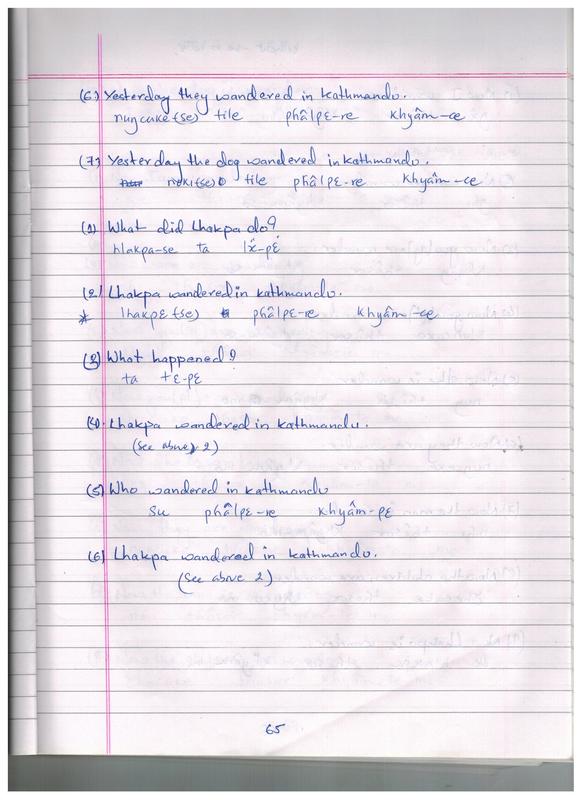 (6) Yesterday they wandered in Kathmandu.
nuŋcake (se) tile phâlpɛ-re khyâm-ce
(7) Yesterday the dog wandered in kathmandu.
noki (se) tile phâlpɛ-re khyâm-ce
(1) What did Lhakpa do?
hlakpa-se ta -pɛ
(2) Lhakpa wandered in kathmandu.
* lhakpɛ (se) phâlpɛ-re khyâm-ce
(3) What happened?
ta tɛ-pɛ
(4). Lhakpa wandered in kathmandu.
(See above, 2)
(5) Who wandered in kathmandu
su phâlpɛ-re khyâm-pɛ
(6) Lhakpa wandered in kathmandu.
(See above 2)
65